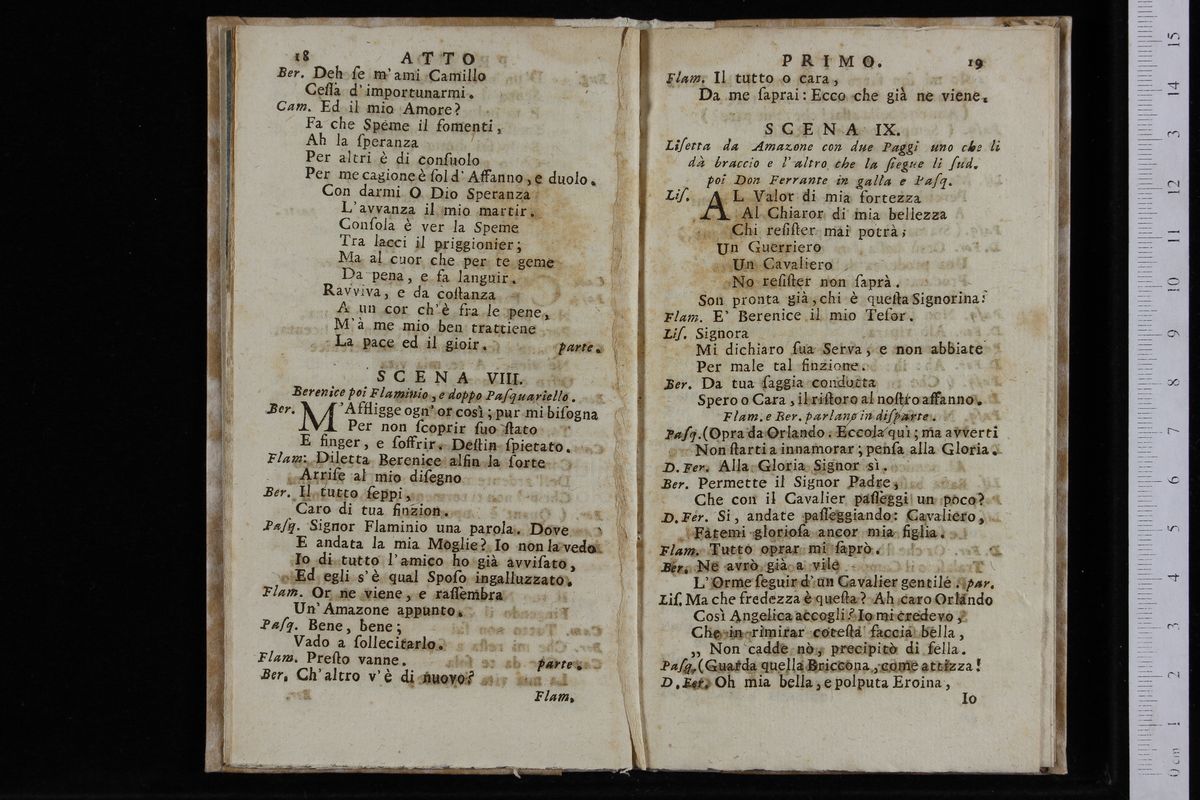 18 ATTO
Ber. Deh ſe m'ami Camillo
Ceſſa d'importunarmi.
Cam. Ed il mio Amore?
Fa che Speme il fomenti,
Ah la ſperanza
Per altri è di conſuolo
Per me cagione è ſol d'Affanno, e duolo.
Con darmi O Dio Speranza
L'avvanza il mio martir.
Conſola è ver la Speme
Tra lacci il priggionier;
Ma al cuor che per te geme
Da pena, e fa languir.
Ravviva, e da coſtanza
A un cor ch'è fra le pene,
M'à me mio ben trattiene
La pace ed il gioir. parte.
SCENA VIII.
Berenice poi Flaminio, e doppo Paſquariello.
Ber. M'Affligge ogn'or così; pur mi biſogna
Per non ſcoprir ſuo ſtato
E finger, e ſoffrir. Deſtin ſpietato.
Flam: Diletta Berenice alfin la ſorte
Arriſe al mio diſegno
Ber. Il tutto ſeppi,
Caro di tua finzion.
Paſq. Signor Flaminio una parola. Dove
E andata la mia Moglie? Io non la vedo
Io di tutto l'amico ho già avviſato,
Ed egli s'è qual Spoſo ingalluzzato.
Flam. Or ne viene, e raſſembra
Un'Amazone appunto.
Paſq. Bene, bene;
Vado a ſollecitarlo.
Flam. Preſto vanne. parte.
Ber. Ch'altro v'è di nuovo?
Flam.
PRIMO. 19
Flam. Il tutto o cara,
Da me ſaprai: Ecco che già ne viene.
SCENA IX.
Liſetta da Amazone con due Paggi uno che li
dà braccio e l'altro che la ſiegue li ſud.
poi Don Ferrante in galla e Paſq.
Liſ. AL Valor di mia fortezza
Al Chiaror di mia bellezza
Chi reſiſter mai potrà;
Un Guerriero
Un Cavaliero
No reſiſter non ſaprà.
Son pronta già, chi è queſta Signorina?
Flam. E' Berenice il mio Teſor.
Liſ. Signora
Mi dichiaro ſua Serva, e non abbiate
Per male tal finzione.
Ber. Da tua ſaggia condotta
Spero o Cara, il riſtoro al noſtro affanno.
Flam. e Ber. parlano in diſparte.
Paſq. (Opra da Orlando. Eccola quì; ma avverti
Non ſtarti a innamorar; penſa alla Gloria.
D. Fer. Alla Gloria Signor sì.
Ber. Permette il Signor Padre,
Che con il Cavalier paſſeggi un poco?
D. Fer. Si, andate paſſeggiando: Cavaliero,
Fatemi glorioſa ancor mia figlia.
Flam. Tutto oprar mi ſaprò.
Ber. Ne avrò già a vile
L'Orme ſeguir d'un Cavalier gentile. par.
Liſ. Ma che fredezza è queſta? Ah caro Orlando
Così Angelica accogli? Io mi credevo,
Che in rimirar coteſta faccia bella,
„ Non cadde nò, precipitò di ſella.
Paſq. (Guarda quella Briccona, come attizza!
D. Fer. Oh mia bella, e polputa Eroina,
Io
15
14
13
12
11
10
9
8
7
6
5
4
3
2
1
0 cm